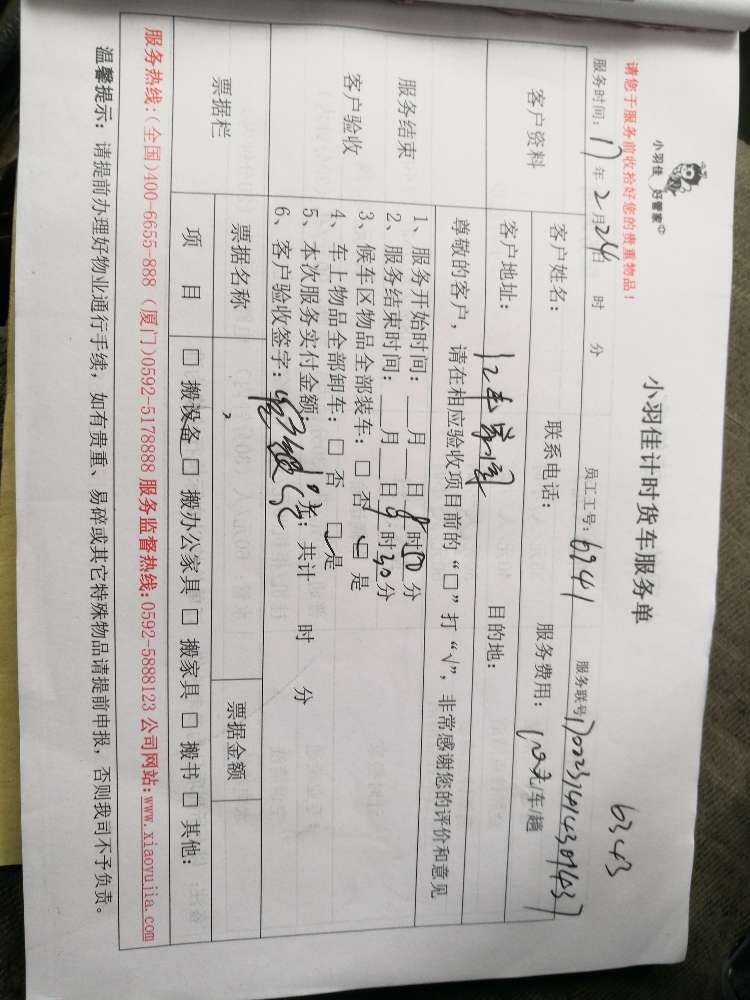 请您于服务前收拾好您的贵重物品！
小羽佳 好管家
小羽佳计时货车服务单
6343
服务时间：17年2月24日 时 分 员工工号：6941 服务联号
客户资料
客户姓名： 联系电话： 服务费用： 元/车/趟
客户地址： 目的地：
尊敬的客户，请在相应验收项目前的“□”打“√”，非常感谢您的评价和意见
服务结束
客户验收
1、服务开始时间：__月__日8时50分
2、服务结束时间：__月__日 时30分
3、候车区物品全部装车：□ 否 □ 是
4、车上物品全部卸车：□ 否 □ 是
5、本次服务实付金额： 元；共计 时 分
6、客户验收签字：
票据栏
票据名称 票据金额
项 目 □ 搬设备 □ 搬办公家具 □ 搬家具 □ 搬书 □ 其他：
服务热线：(全国)400-6655-888 (厦门)0592-5178888 服务监督热线：0592-5888123 公司网站：www.xiaoyujia.com
温馨提示：请提前办理好物业通行手续，如有贵重、易碎或其它特殊物品请提前申报，否则我司不予负责。